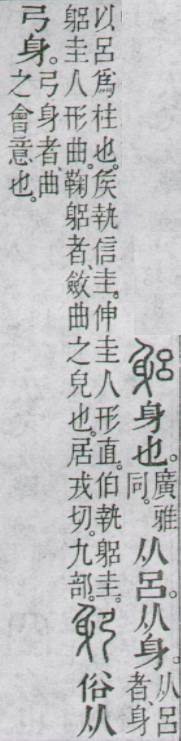 躳身也。廣雅同。从呂。从身。从呂者、身
以呂爲柱也。矦執信圭。伸圭人形直。伯執躳圭。
躳圭人形曲。鞠躳者、斂曲之皃也。居戎切。九部。躬俗从
弓身。弓身者、曲
之會意也。